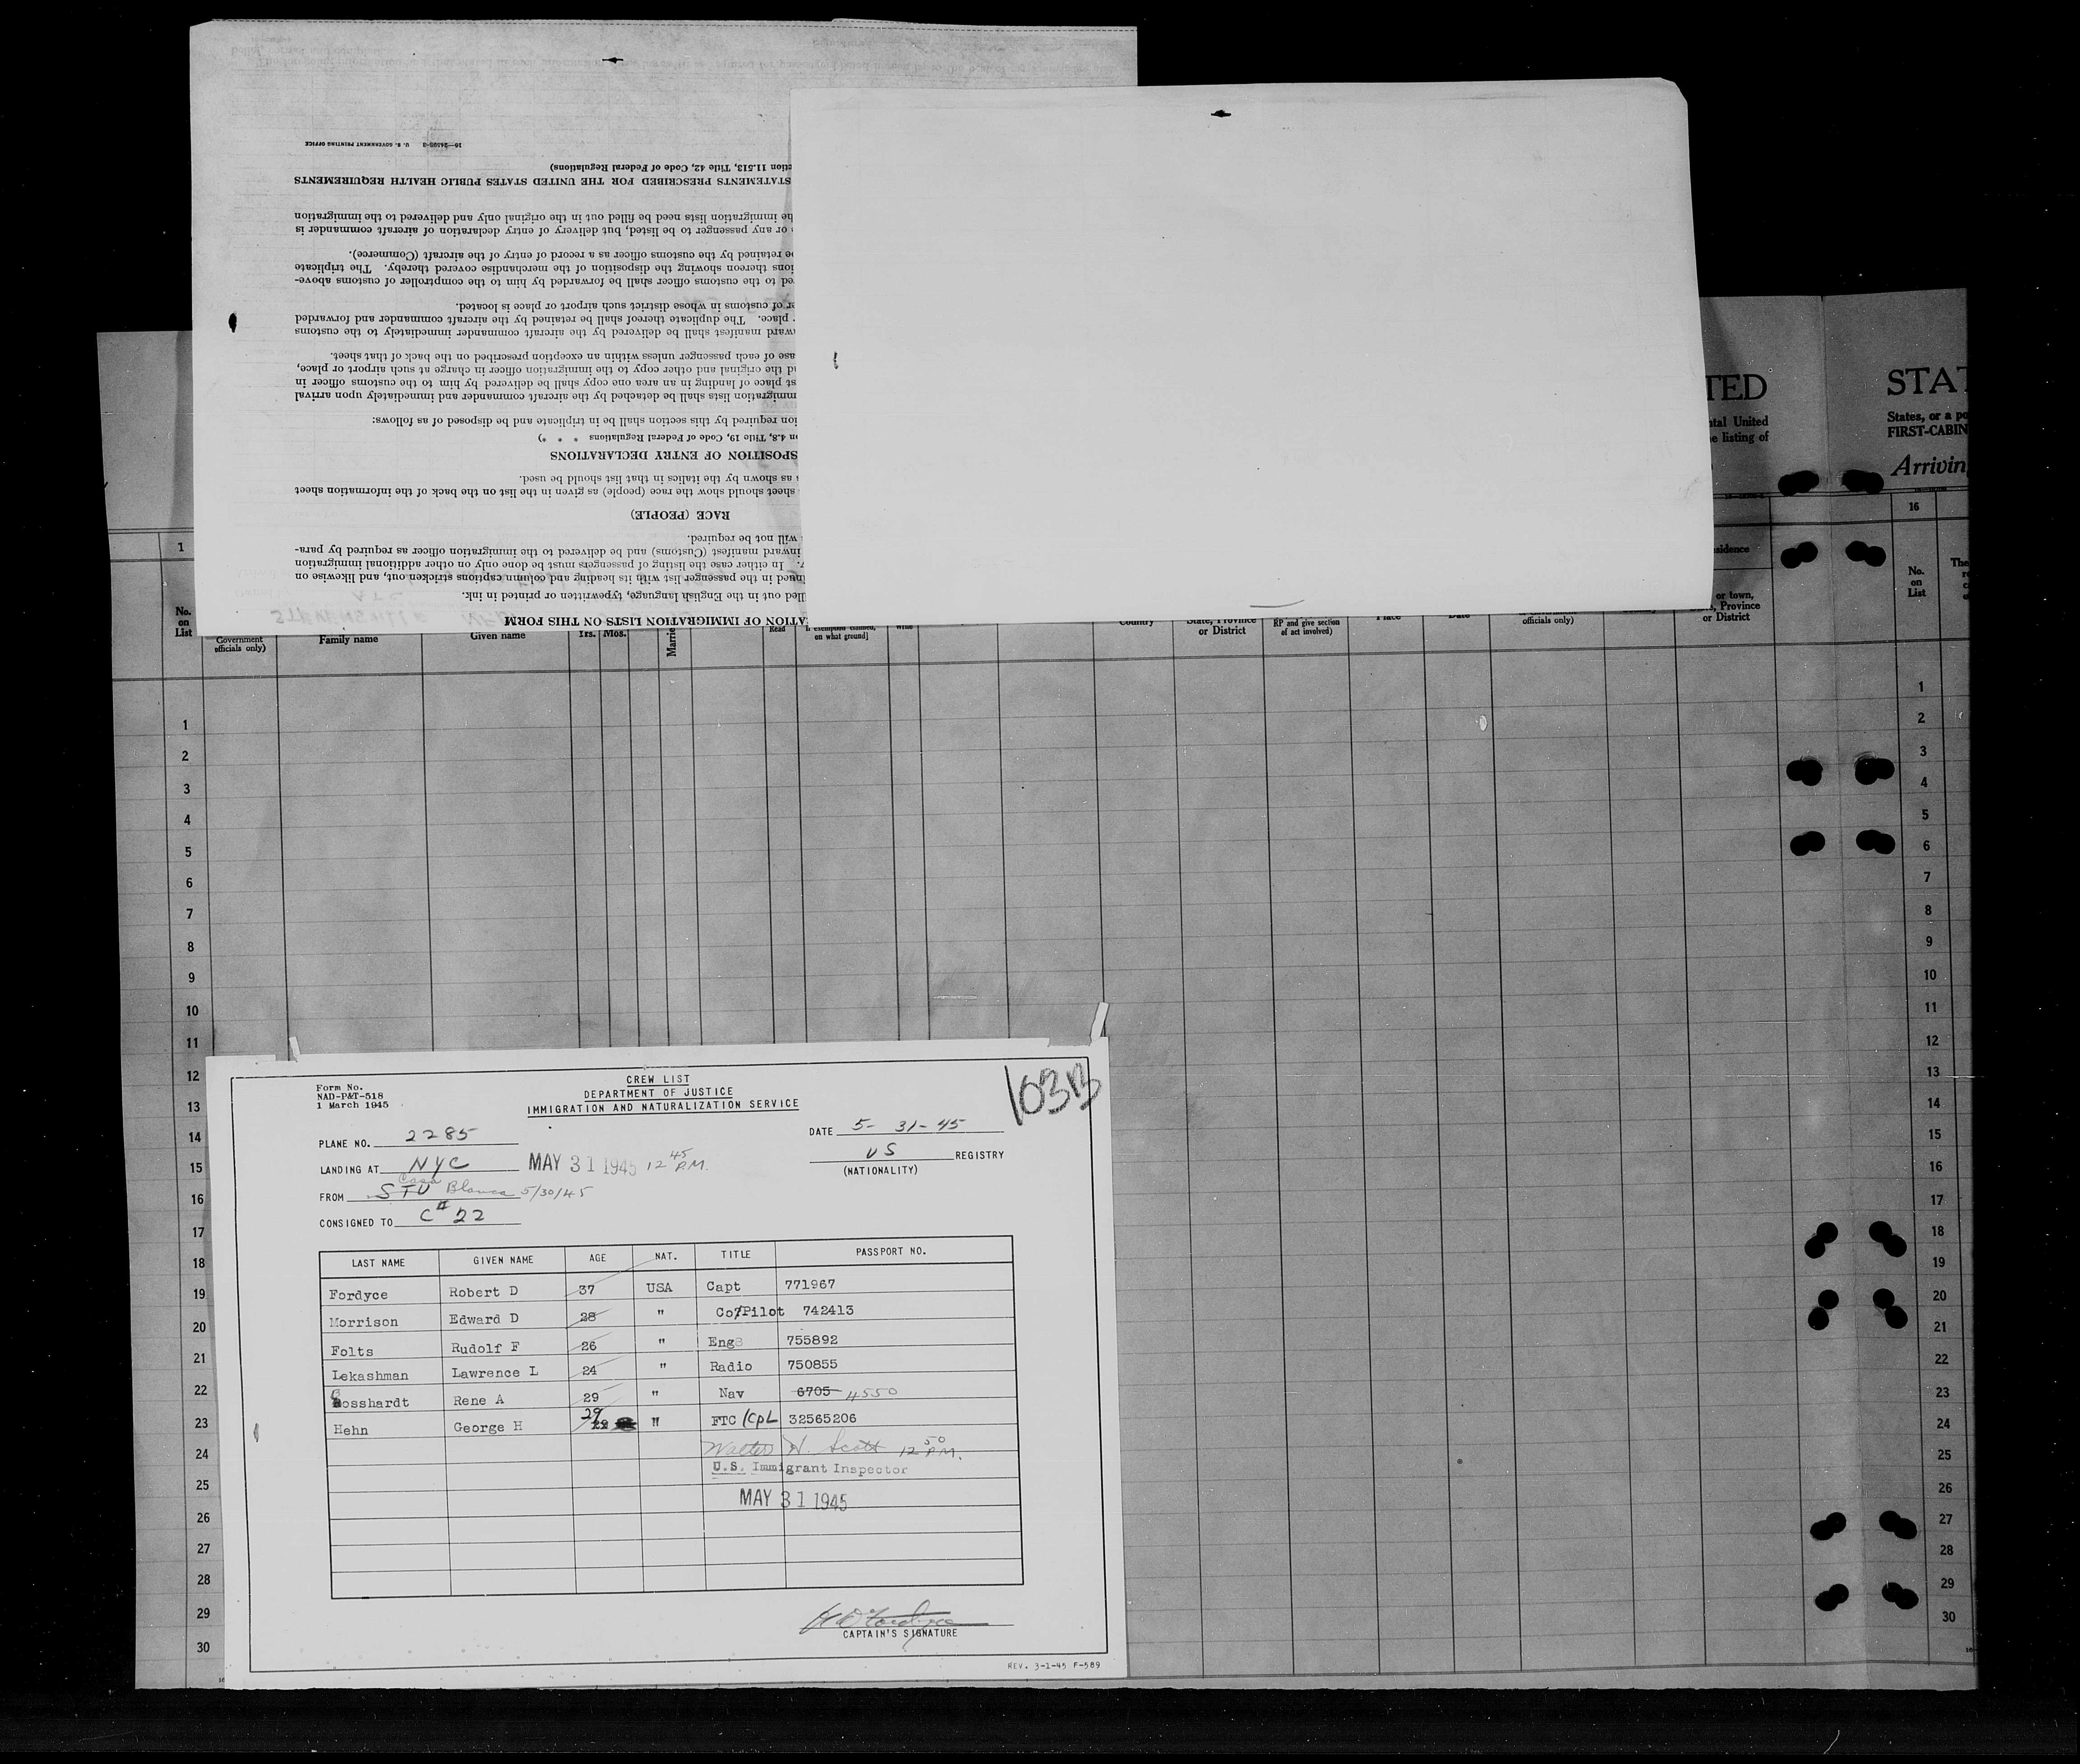 16—24598-3 U. S. GOVERNMENT PRINTING OFFICE
ction 11.513, Title 42, Code of Federal Regulations)
STATEMENTS PRESCRIBED FOR THE UNITED STATES PUBLIC HEALTH REQUIREMENTS
he immigration lists need be filled out in the original only and delivered to the immigration
or any passenger to be listed, but delivery of entry declaration of aircraft commander is
be retained by the customs officer as a record of entry of the aircraft (Commerce).
ions thereon showing the disposition of the merchandise covered thereby. The triplicate
ed to the customs officer shall be forwarded by him to the comptroller of customs above-
er of customs in whose district such airport or place is located.
place. The duplicate thereof shall be retained by the aircraft commander and forwarded
ward manifest shall be delivered by the aircraft commander immediately to the customs
ase of each passenger unless within an exception prescribed on the back of that sheet.
nd the original and other copy to the immigration officer in charge at such airport or place,
st place of landing in an area one copy shall be delivered by him to the customs officer in
mmigration lists shall be detached by the aircraft commander and immediately upon arrival
ion required by this section shall be in triplicate and be disposed of as follows:
on 4.8, Title 19, Code of Federal Regulations * * *)
SPOSITION OF ENTRY DECLARATIONS
as shown by the italics in that list should be used.
sheet should show the race (people) as given in the list on the back of the information sheet
RACE (PEOPLE)
will not be required.
inward manifest (Customs) and be delivered to the immigration officer as required by para-
. In either case the listing of passengers must be done only on other additional immigration
nued in the passenger list with its heading and column captions stricken out, and likewise on
lled out in the English language, typewritten or printed in ink.
ATION OF IMMIGRATION LISTS ON THIS FORM
TED STAT
ntal United States, or a po
e listing of FIRST-CABIN
Arrivin
1 16
sidence
No. on List
Government officials only)
Family name
Given name
Yrs. Mos.
Read
on what ground]
Country
State, Province or District
RP and give section of act involved)
Place
Date
officials only)
or town, Province or District
No. on List
1 1
2 2
3 3
4 4
5 5
6 6
7 7
8 8
9 9
10 10
11 11
12 12
13 13
14 14
15 15
16 16
17 17
18 18
19 19
20 20
21 21
22 22
23 23
24 24
25 25
26 26
27 27
28 28
29 29
30 30
Form No.
NAD-P&T-518
1 March 1945
CREW LIST
DEPARTMENT OF JUSTICE
IMMIGRATION AND NATURALIZATION SERVICE
103B
PLANE NO. 2285
DATE 5-31-45
LANDING AT NYC MAY 31 1945 12 45 P.M.
US REGISTRY
(NATIONALITY)
FROM STU Casa Blanca 5/30/45
CONSIGNED TO C# 22
LAST NAME GIVEN NAME AGE NAT. TITLE PASSPORT NO.
Fordyce Robert D 37 USA Capt 771967
Morrison Edward D 28 " Co/Pilot 742413
Folts Rudolf F 26 " Eng 755892
Lekashman Lawrence L 24 " Radio 750855
Bosshardt Rene A 29 " Nav 6705 4550
Hehn George H 29 " FTC /CpL 32565206
Walter H. Scott 12 50 P.M.
U.S. Immigrant Inspector
MAY 31 1945
R D Fordyce
CAPTAIN'S SIGNATURE
REV. 3-1-45 F-589